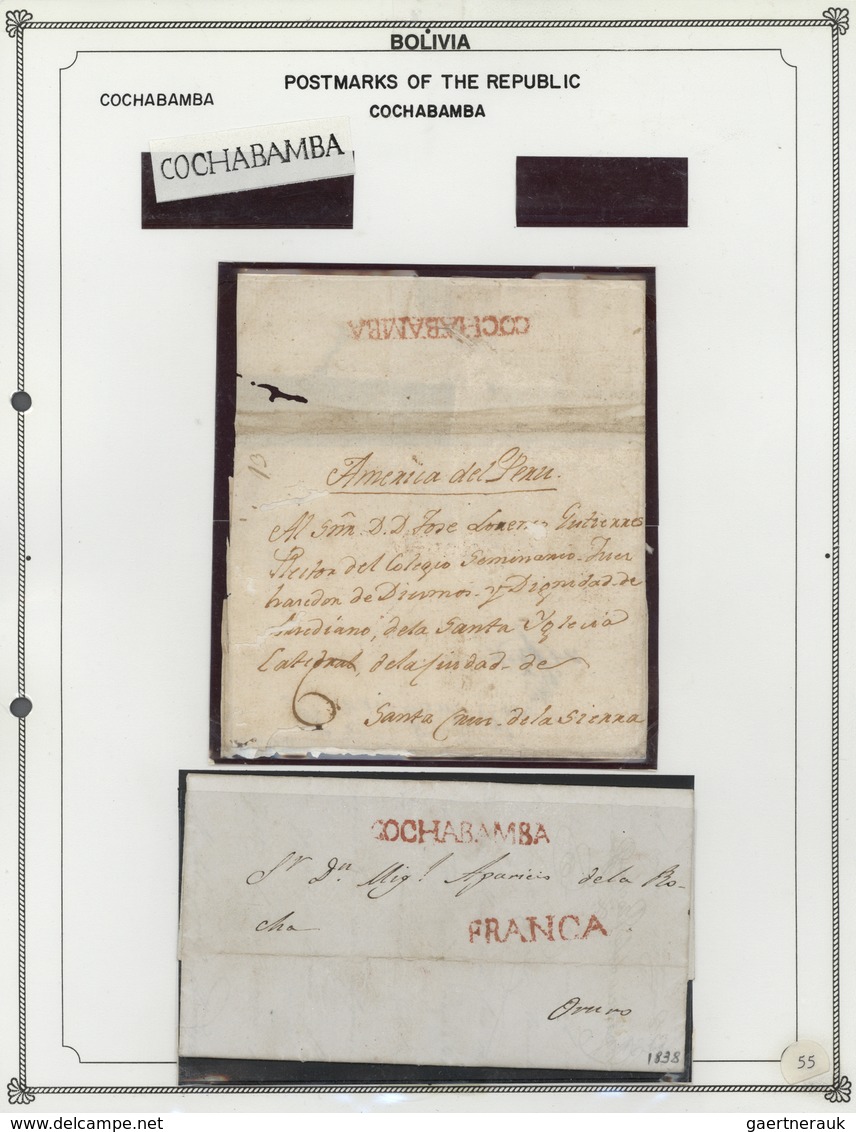 BOLIVIA
POSTMARKS OF THE REPUBLIC
COCHABAMBA
COCHABAMBA
COCHABAMBA
COCHABAMBA
13
America del Peru.
Al Sm̃. D.D. Jose Lorenzo Gutierres
Rector del Colegio Seminario. Jues
hacedor de Diesmos. y Dignidad. de
dela Santa Yglecia
Catedral, dela ciudad. de
6
Santa Cruz. dela Sierra
COCHABAMBA
Sr. Dn. Migl. Aparicio de la Ro-
cha
FRANCA
Oruro
1838
55
gaertnerauk